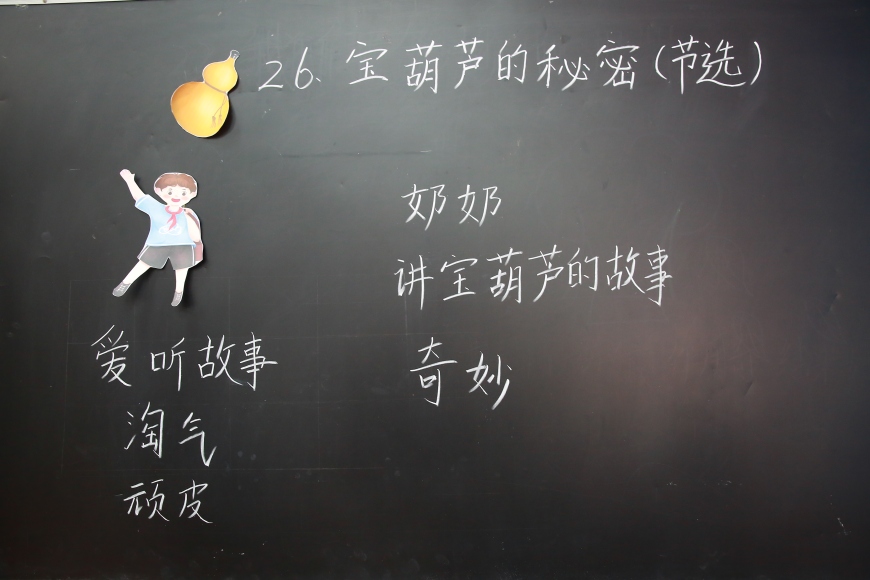 26.宝葫芦的秘密(节选)
奶奶
讲宝葫芦的故事
爱听故事
奇妙
淘气
顽皮